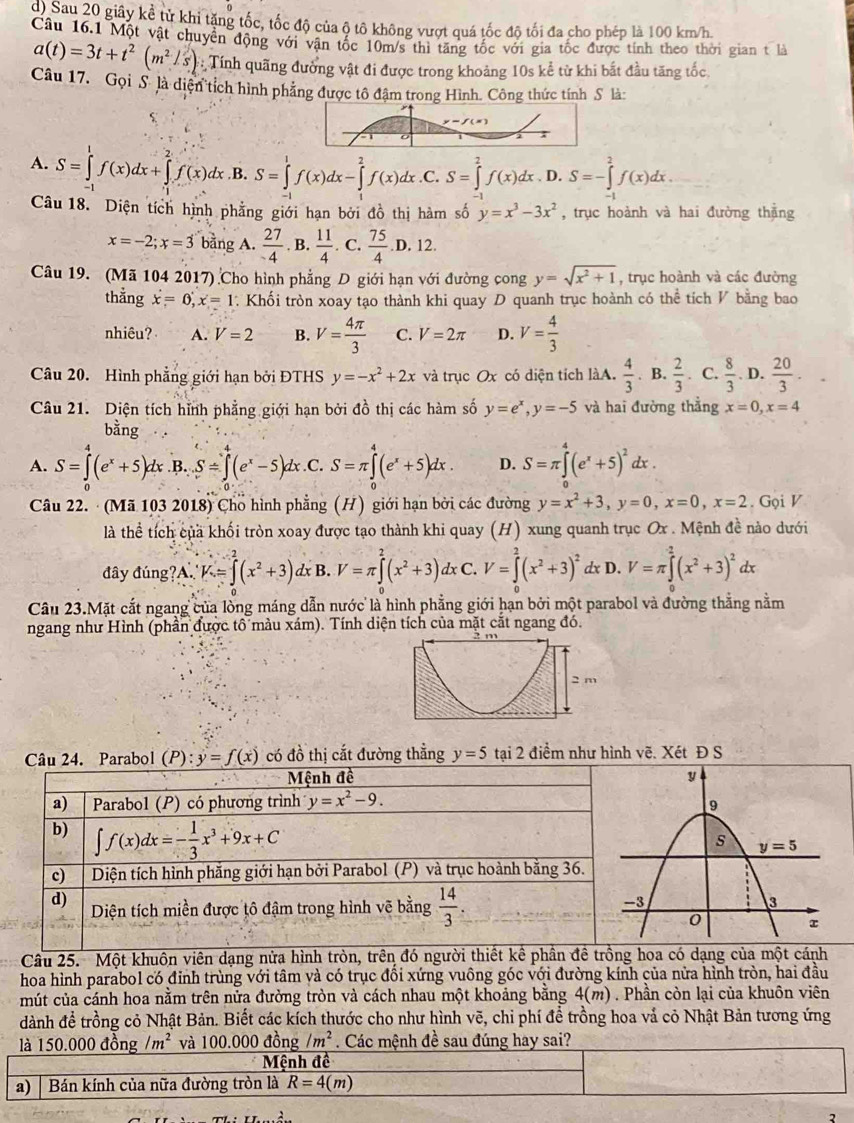 d) Sau 20 giây kể từ khi tăng tốc, tốc độ của ô tô không vượt quá tốc độ tối đa cho phép là 100 km/h.
Câu 16.1 Một vật chuyển động với vận tốc 10m/s thì tăng tốc với gia tốc được tính theo thời gian t là
a(t) = 3t + t² (m²/s). Tính quãng đường vật đi được trong khoảng 10s kể từ khi bắt đầu tăng tốc.
Câu 17. Gọi S là diện tích hình phẳng được tô đậm trong Hình. Công thức tính S là:
y = f(x)
-1 O 1 2 x
A. S = ∫_{-1}^{1} f(x)dx + ∫_{1}^{2} f(x)dx .B. S = ∫_{-1}^{1} f(x)dx - ∫_{1}^{2} f(x)dx .C. S = ∫_{-1}^{2} f(x)dx . D. S = -∫_{-1}^{2} f(x)dx .
Câu 18. Diện tích hình phẳng giới hạn bởi đồ thị hàm số y = x³ - 3x² , trục hoành và hai đường thẳng
x = -2; x = 3 bằng A. 27/4 . B. 11/4 . C. 75/4 .D. 12.
Câu 19. (Mã 104 2017) Cho hình phẳng D giới hạn với đường cong y = √(x² + 1) , trục hoành và các đường
thẳng x = 0, x = 1. Khối tròn xoay tạo thành khi quay D quanh trục hoành có thể tích V bằng bao
nhiêu? A. V = 2 B. V = 4π/3 C. V = 2π D. V = 4/3
Câu 20. Hình phẳng giới hạn bởi ĐTHS y = -x² + 2x và trục Ox có diện tích làA. 4/3 . B. 2/3 . C. 8/3 . D. 20/3 .
Câu 21. Diện tích hình phẳng giới hạn bởi đồ thị các hàm số y = eˣ, y = -5 và hai đường thẳng x = 0, x = 4
bằng
A. S = ∫_{0}^{4} (eˣ + 5)dx .B. S = ∫_{0}^{4} (eˣ - 5)dx .C. S = π∫_{0}^{4} (eˣ + 5)dx . D. S = π∫_{0}^{4} (eˣ + 5)² dx .
Câu 22. (Mã 103 2018) Cho hình phẳng (H) giới hạn bởi các đường y = x² + 3, y = 0, x = 0, x = 2 . Gọi V
là thể tích của khối tròn xoay được tạo thành khi quay (H) xung quanh trục Ox . Mệnh đề nào dưới
đây đúng?A. V = ∫_{0}^{2} (x² + 3) dx B. V = π∫_{0}^{2} (x² + 3) dx C. V = ∫_{0}^{2} (x² + 3)² dx D. V = π∫_{0}^{2} (x² + 3)² dx
Câu 23.Mặt cắt ngang của lòng máng dẫn nước là hình phẳng giới hạn bởi một parabol và đường thẳng nằm
ngang như Hình (phần được tô màu xám). Tính diện tích của mặt cắt ngang đó.
2 m
2 m
Câu 24. Parabol (P): y = f(x) có đồ thị cắt đường thẳng y = 5 tại 2 điểm như hình vẽ. Xét Đ S
Mệnh đề
a) Parabol (P) có phương trình y = x² - 9.
b) ∫ f(x)dx = -1/3 x³ + 9x + C
c) Diện tích hình phẳng giới hạn bởi Parabol (P) và trục hoành bằng 36.
d) Diện tích miền được tô đậm trong hình vẽ bằng 14/3 .
y
9
S y = 5
-3 3
O x
Câu 25. Một khuôn viên dạng nửa hình tròn, trên đó người thiết kế phần để trồng hoa có dạng của một cánh
hoa hình parabol có đỉnh trùng với tâm và có trục đối xứng vuông góc với đường kính của nửa hình tròn, hai đầu
mút của cánh hoa nằm trên nửa đường tròn và cách nhau một khoảng bằng 4(m) . Phần còn lại của khuôn viên
dành để trồng cỏ Nhật Bản. Biết các kích thước cho như hình vẽ, chi phí để trồng hoa và cỏ Nhật Bản tương ứng
là 150.000 đồng /m² và 100.000 đồng /m² . Các mệnh đề sau đúng hay sai?
Mệnh đề
a) Bán kính của nữa đường tròn là R = 4(m)
3